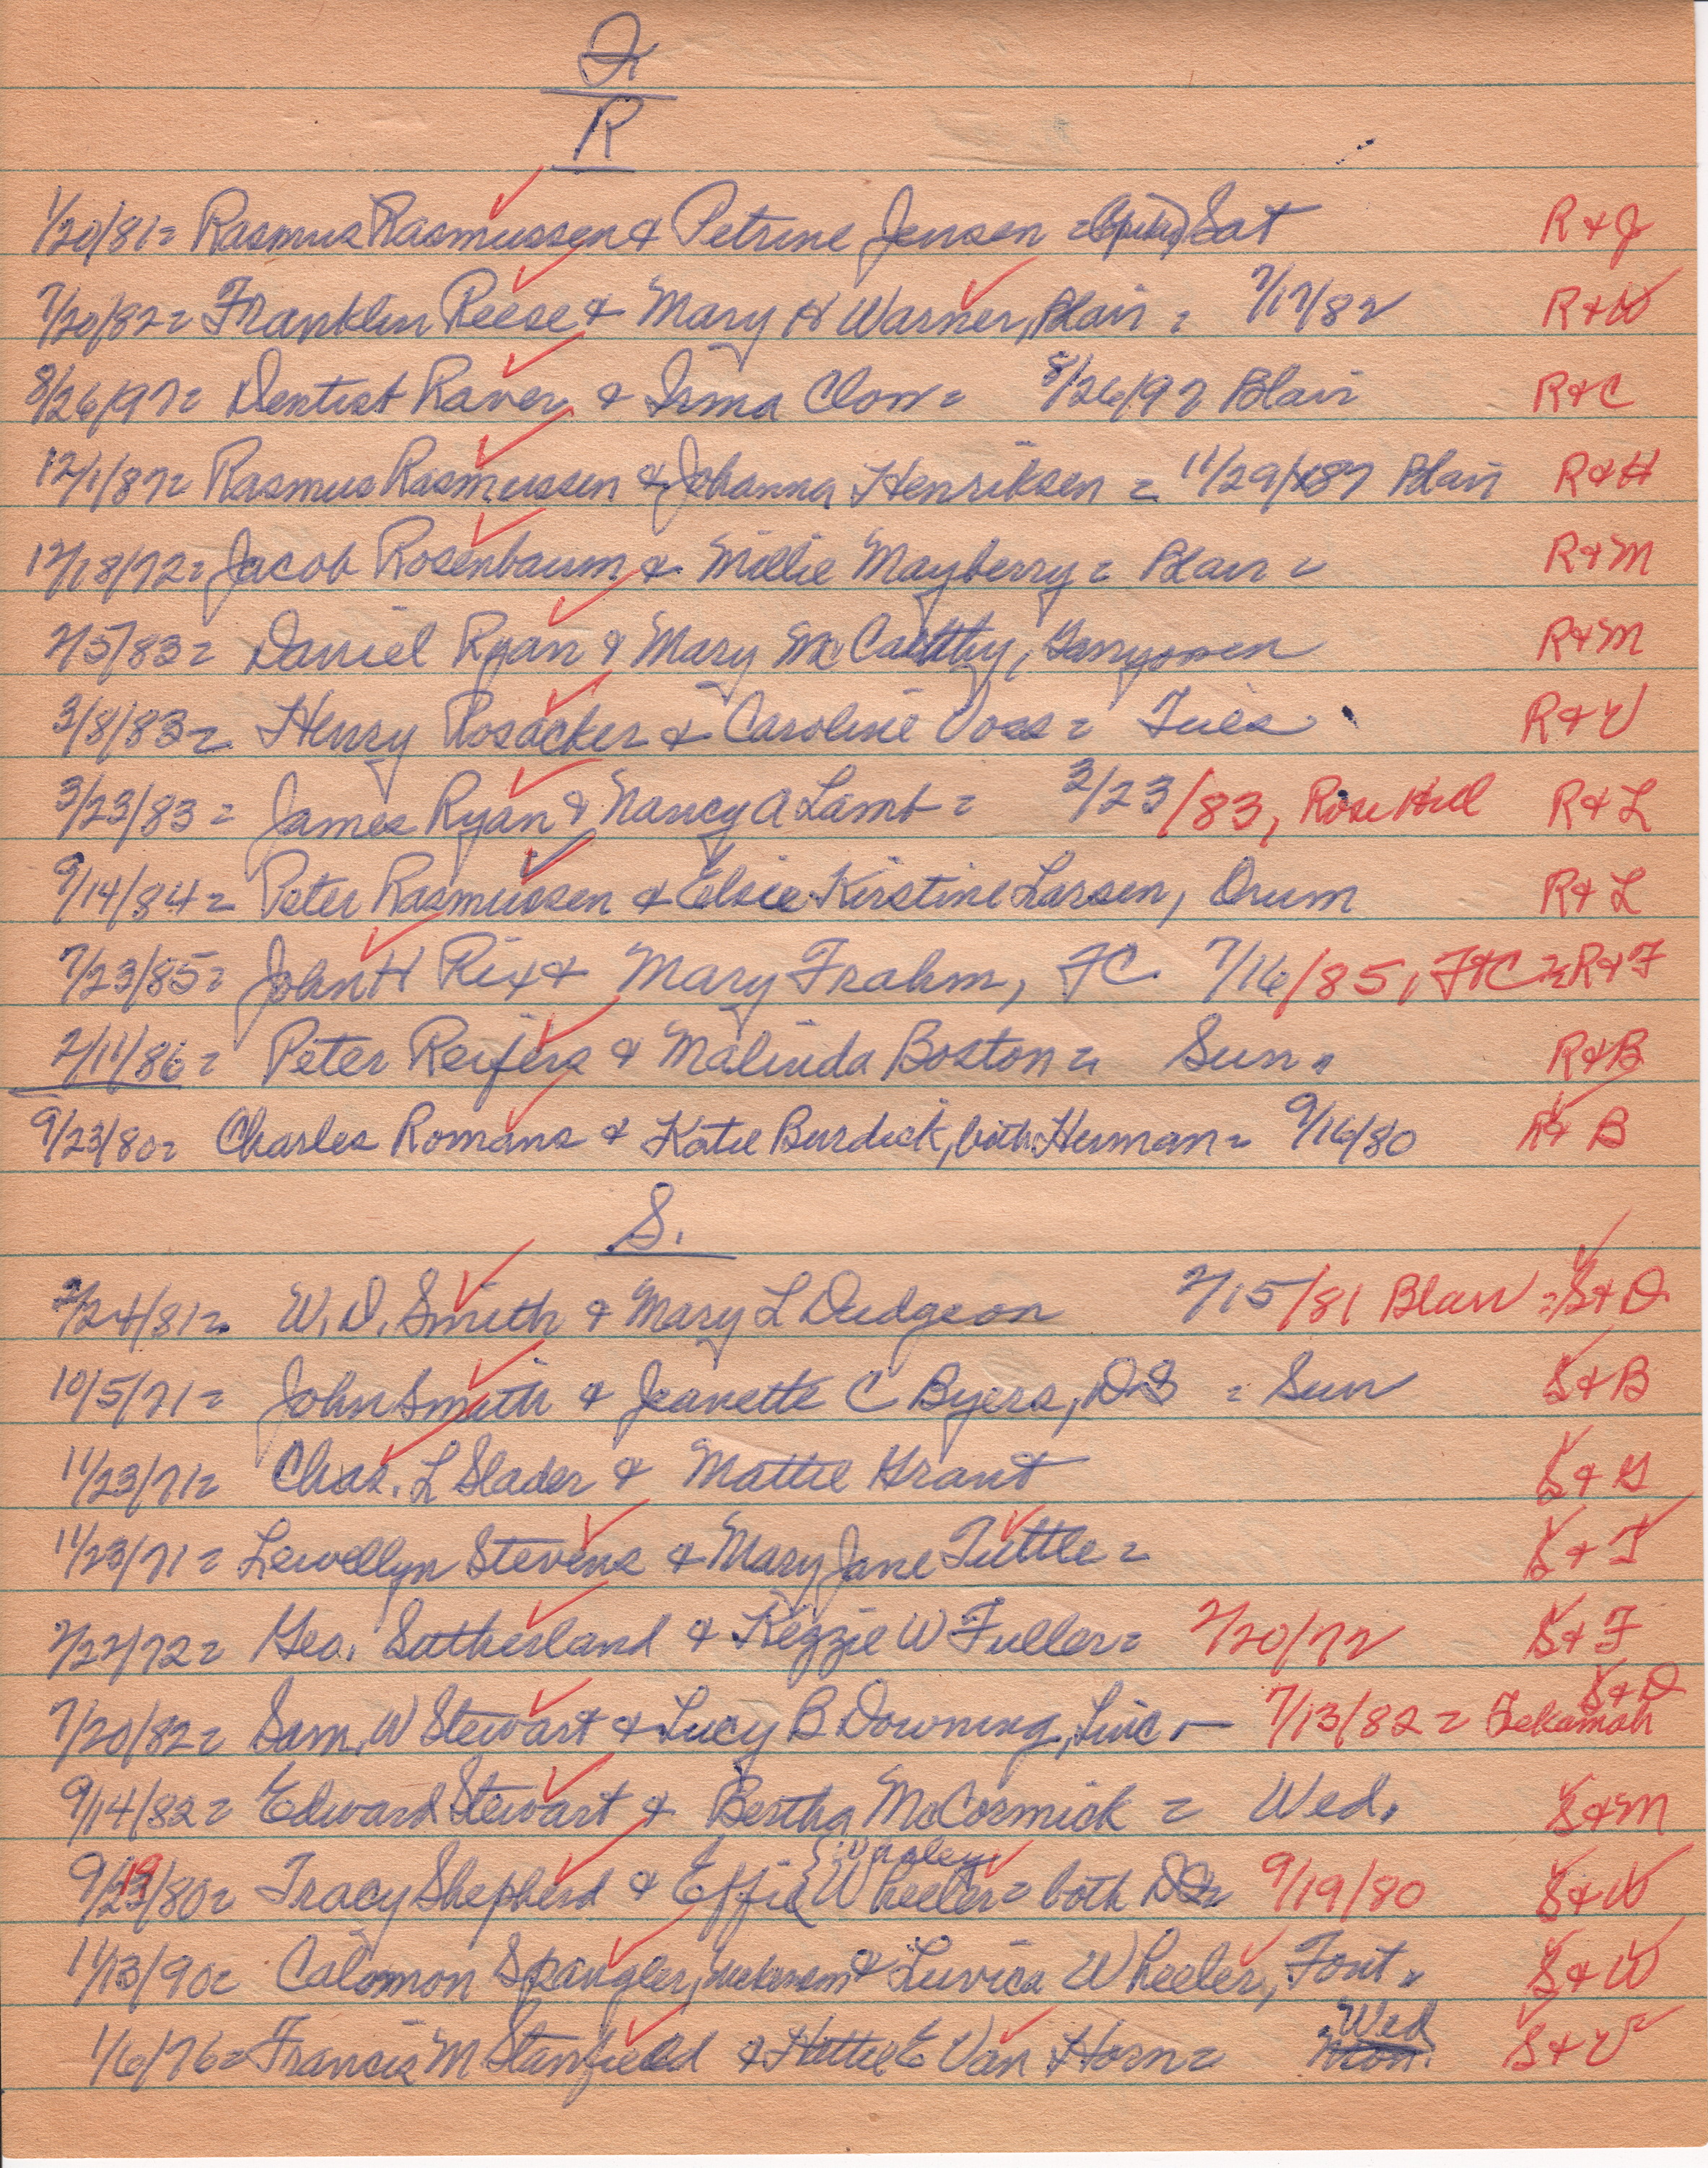 Q
R
1/20/81= Rasmus Rasmussen & Petrine Jensen = Sat R & J
7/20/82= Franklin Reese & Mary H Warner, Blair = 7/17/82 R & W
8/26/97= Dentist Raver & Irma Clow= 8/26/97 Blair R & C
12/1/87= Rasmus Rasmussen & Johanna Henriksen = 11/29/87 Blair R & H
12/18/72= Jacob Rosenbaum & Millie Mayberry = Blair = R & M
2/5/83= Daniel Ryan & Mary McCarthy, Garryowen R & M
3/8/83= Henry Rosacker & Caroline Voss = Tues R & V
3/23/83= James Ryan & Nancy A Lamb = 3/23/83, Rose Hill R & L
9/14/84= Peter Rasmussen & Elsie Kirstine Larsen, Orum R & L
7/23/85= John H Rix & Mary Frahm, FC 7/16/85, FtC = R & F
2/11/86= Peter Reifers & Malinda Boston = Sun. R & B
9/23/80= Charles Romans & Katie Burdick, both Herman = 9/16/80 R & B
S.
2/24/81= W. D. Smith & Mary L Dudgeon 2/15/81 Blair = S & D
10/5/71= John Smith & Jeanette C Byers, DS = Sun S & B
11/23/71= Chas. L Slader & Mattie Grant S & G
11/23/71= Lewellyn Stevens & Mary Jane Tuttle = S & T
2/22/72= Geo. Sutherland & Kezzie W Fuller= 2/20/72 S & F
7/20/82= Sam. W Stewart & Lucy B Downing, Linc - 7/13/82 = Tekamah S & D
9/14/82= Edward Stewart & Bertha McCormick = Wed. S & M
9/19/80= Tracy Shepherd & Effie Wheeler = both DS= 9/19/80 S & W
11/13/90= Calomon Spangler, & Luvica Wheeler, Font. S & W
1/6/76= Francis M Stanfield & Hettie E Van Horn= Mon. Wed S & V